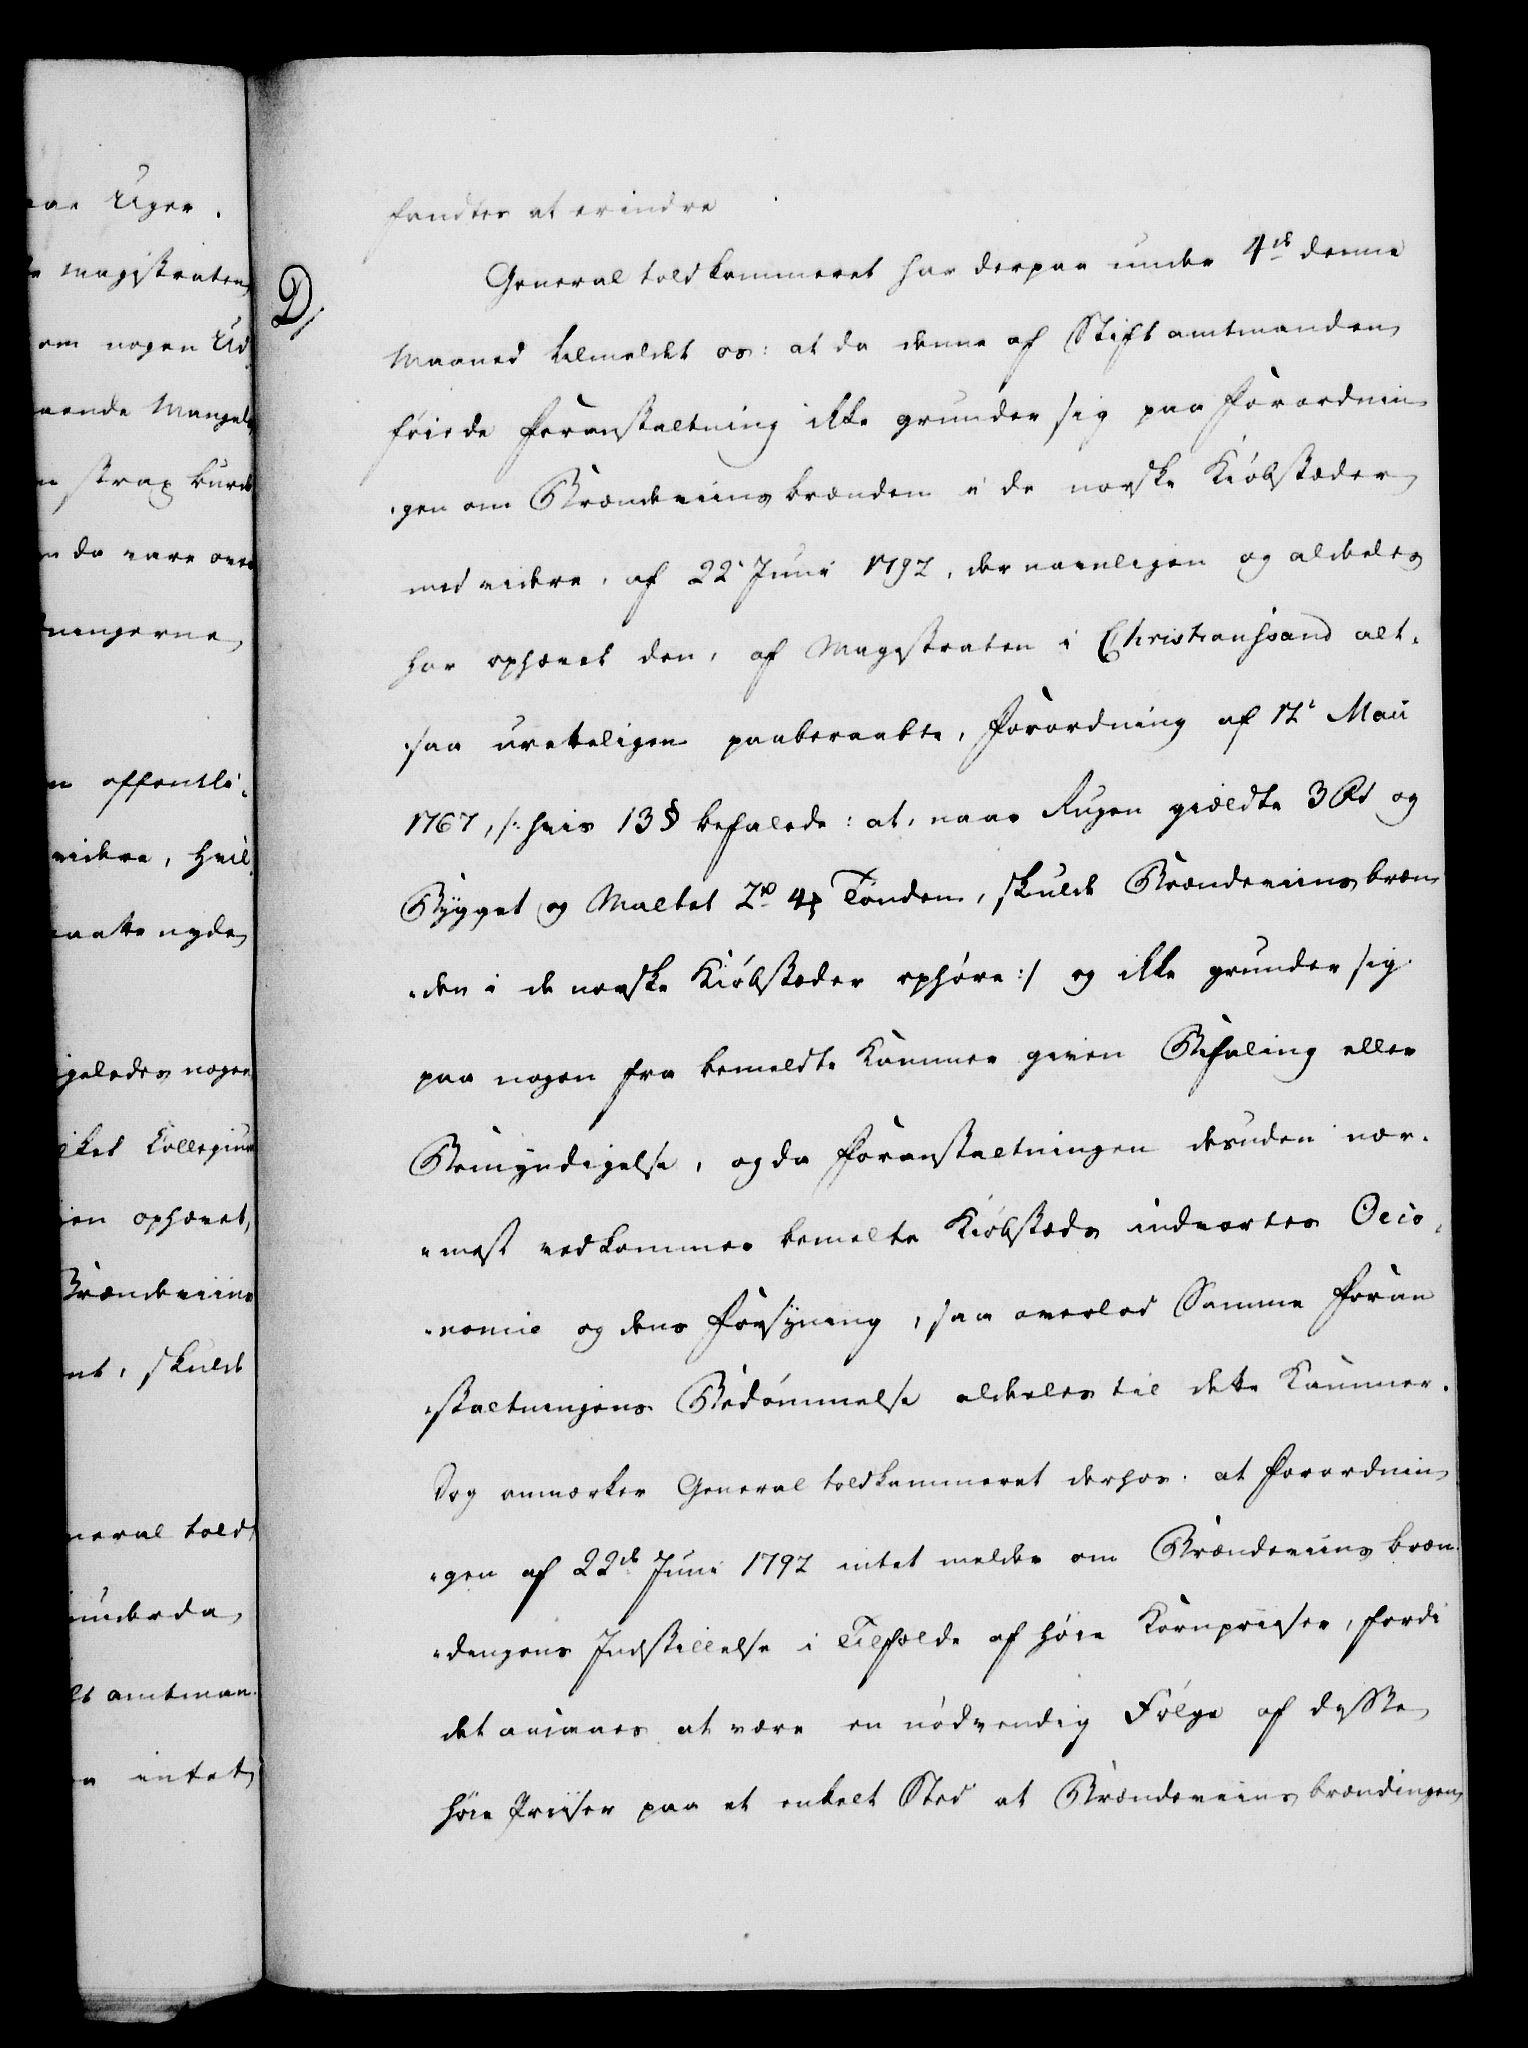 aar Uger.
magistraten
om nogen Ud
aende Mangel
strax burde
da vare over
ningerne
offentli-
videre, hvil
maatte nyde
geledes nogen
ket Collegium
en ophævet,
Brændeviins
nt, skulde
neral told
underda
amtman
intet
fandtes at erindre
D/
General toldkammeret har derpaa under 4de denne
Maaned tilmeldet os: at da denne af Stiftamtmanden
föiede Foranstaltning ikke grunder sig paa Forordnin-
-gen om Brændeviinsbrænden i de norske Kiöbstæder
med videre, af 22 Junii 1792, der navnligen og aldeles
har ophævet den, af Magistraten i Christianssand alt-
-saa uretteligen paaberaabte, Forordning af 12 Maii
1767, /: hvis 13 § befalede: at, naar Rugen gieldte 3 Rd og
Bygget og Maltet 2 Rd 4 # Tönden, skulde Brændeviinsbræn-
-den i de norske Kiöbstæder ophöre :/ og ikke grunder sig
paa nogen fra bemeldte Kammer given Befaling eller
Bemyndigelse, og da Foranstaltningen desuden nær-
-mest vedkommer bemelte Kiöbstæds indvortes Oeco-
-nomie og dens Forsyning, saa overlod Samme Foran
-staltningens Bedömmelse aldeles til dette Kammer.
Dog anmærker General toldkammeret derhos: at Forordnin
-gen af 22de Juni 1792 intet melder om Brændeviins bræn-
-dingens Indstillelse i Tilfælde af höie Kornpriiser, fordi
det ansaaes at være en nödvendig Fölge af disse
höie Priiser paa et enkelt Sted at Brændeviins brændingen